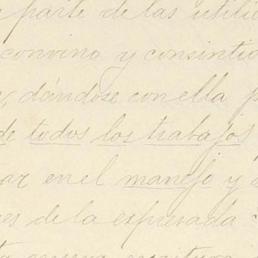 parte de las utili
convino y consintio
, dándose con ella p
de todos los trabajos
ar en el manejo y
es de la expresada